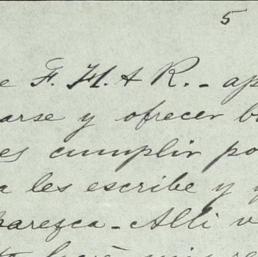 5
e F. H. & R. - ap
arse y ofrecer b
es cumplir po
a les escribe y y
parezca - Alli v